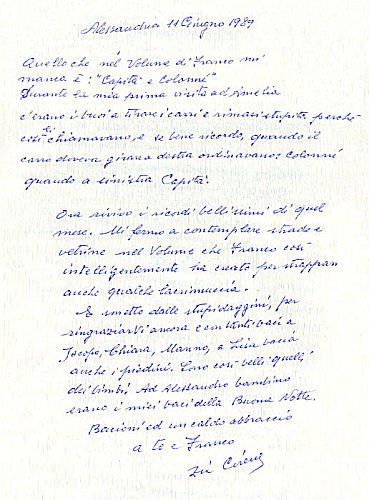 Alessandria 11 Giugno 1989
Quello che nel Volume di Franco mi
manca è: "Capità e Colonné"
Durante la mia prima visita ad Amelia
c'erano i buoi a tirare i carri e rimasi stupita perché
così li chiamavano, e se bene ricordo, quando il
carro doveva girare a destra ordinavano: Colonné
quando a sinistra Capità.
Ora rivivo i ricordi bellissimi di quel
mese. Mi fermo a contemplare strade e
vetrine nel Volume che Franco così
intelligentemente ha creato per strappar
anche qualche lacrimuccia.
E smetto dalle stupidaggini, per
ringraziarVi ancora e con tanti baci a
Jacopo, Chiara, Manno, a Lisa bacia
anche i piedini. Sono così belli quelli
dei bimbi. Ad Alessandro bambino
erano i miei baci della Buona Notte.
Bacioni ed un caldo abbraccio
a te e Franco
Zia